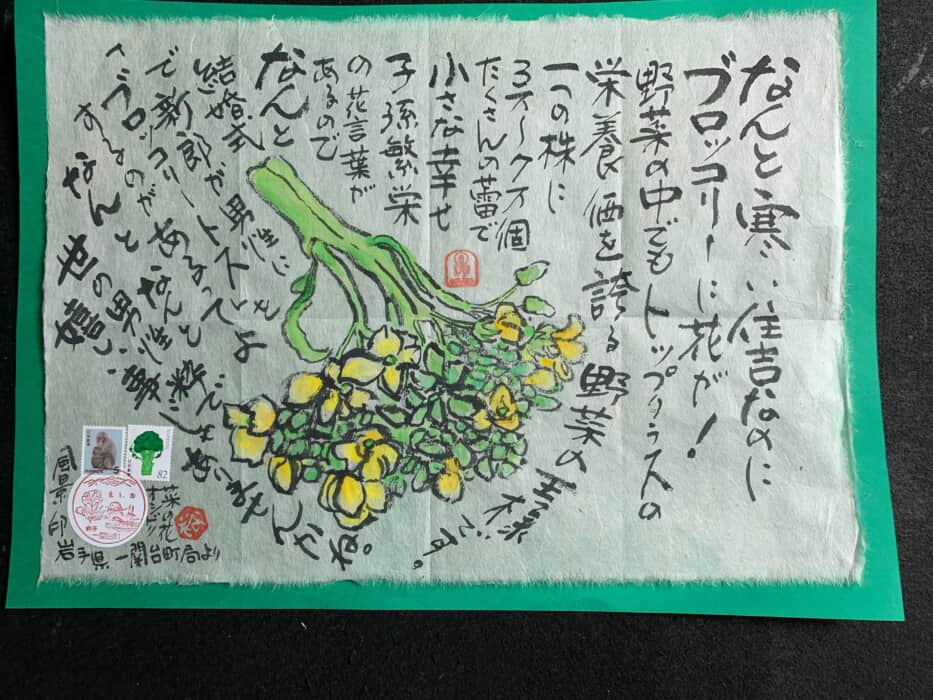 なんと寒い住吉なのに
ブロッコリーに花が!
野菜の中でもトップクラスの
栄養価を誇る野菜の王様です。
一つの株に
3万〜7万個
たくさんの蕾で
小さな幸せ
子孫繁栄
の花言葉が
あるので
なんと
結婚式
で新郎が男性に
ブロッコリートスとよ
するのが あるって
なんと なんと
世の男性
嬉しい事
粋じゃあ
ありませんかねぇ。
82
菜の花
オシドリ
風景印 岩手県 一関台町局より